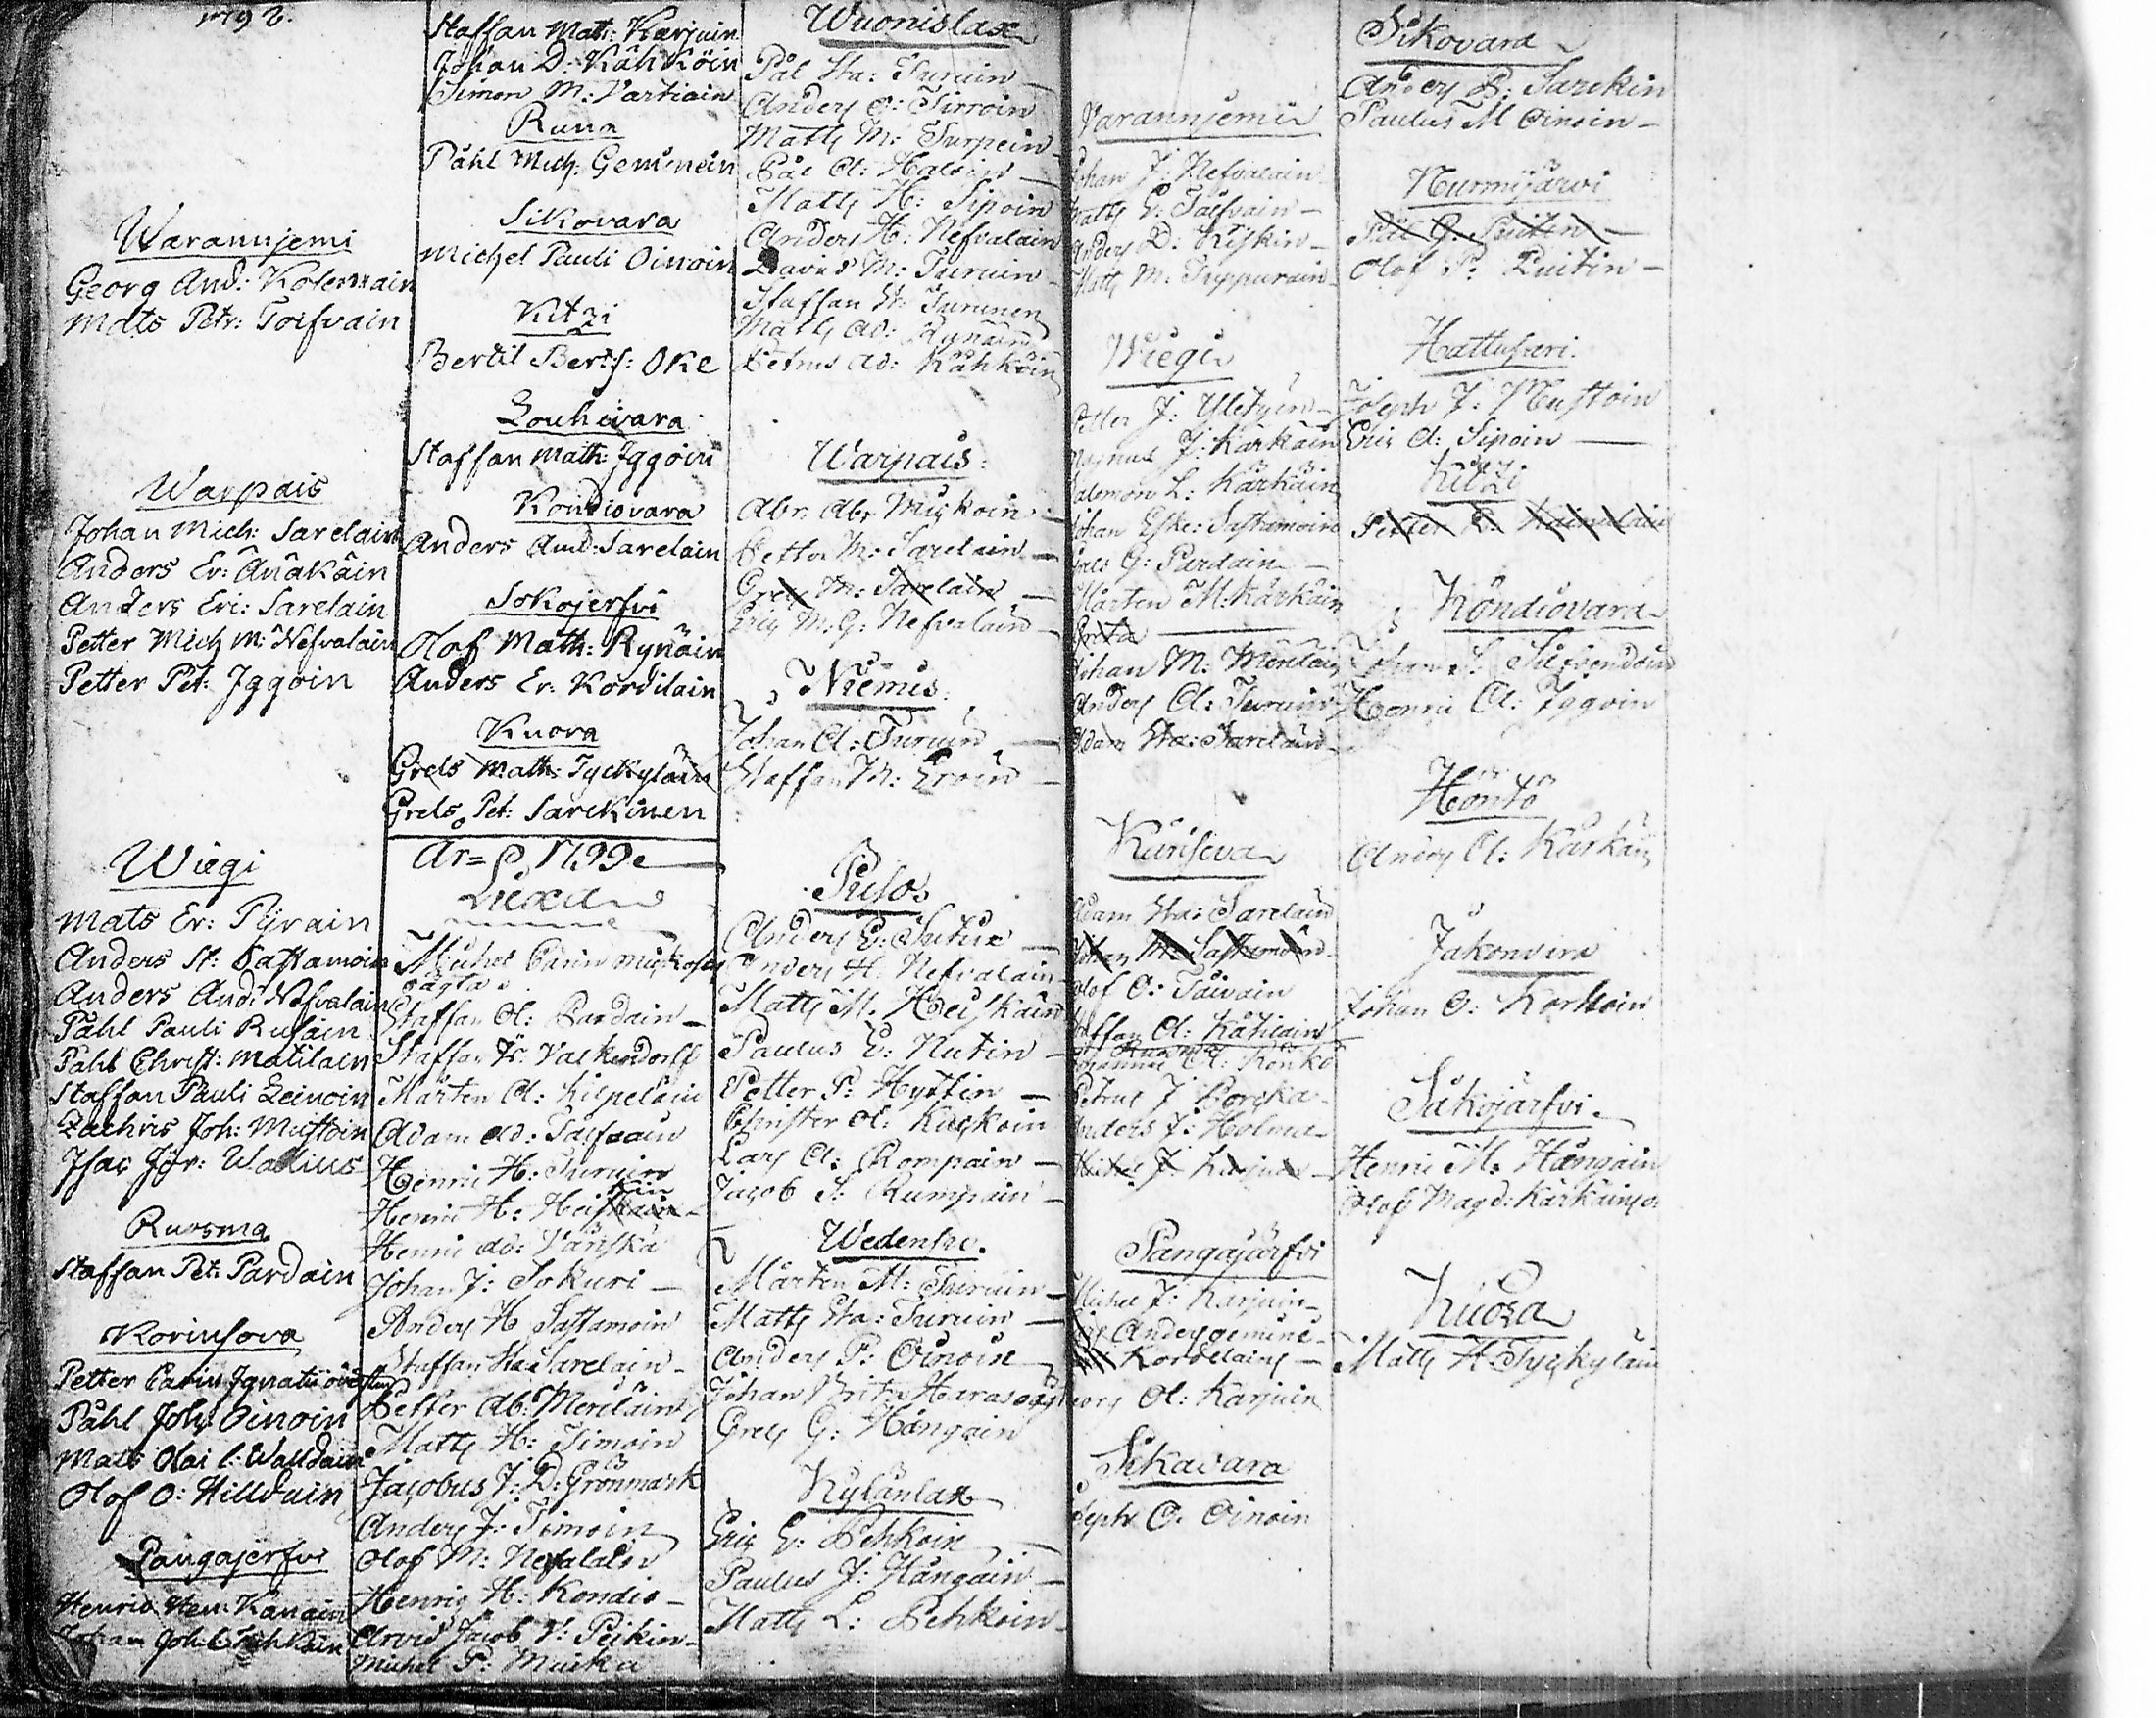 1798.
Warannjemi
Georg And: Kolemain
Mats Petr: Toifvain
Warpais
Johan Mich: Sarelain
Anders Er: Änäkäin
Anders Eri: Sarelain
Petter Mich M: Nefvalain
Petter Pet: Iggoin
Wiegi
Mats Er: Pijrain
Anders St: Sastamoin
Anders And: Nefvalain
Påhl Pauli Rusain
Påhl Christ: Matilain
Staffan Pauli Leinoin
Zachris Joh: Mustoin
Isac Jör: Walius
Ruosma
Staffan Pet: Pardain
Korinsova
Petter Carin Ignatii
Påhl Joh: Oinoin
Mats Olai l: Walldain
Olof O: Hilldain
Pangajerfvi
Henric Hen: Känäin
Johan Joh:
Staffan Mat: Karjuin
Johan D: Kähköin
Simon M: Vartiain
Runa
Påhl Mich: Geminein
Sikovara
Michel Pauli Oinoin
Kitzi
Bertil Bert: Oke
Louhivara
Staffan Math: Iggoin
Kondiovara
Anders And: Sarelain
Sokojerfvi
Olof Math: Rynäin
Anders Er: Kordilain
Kuora
Grels Math: Tyckyläin
Grels Pet: Sarckinen
År 1799
Liexa
Michel Carin
Staffan Ol: Pardain
Staffan Valkendorff
Mårten Ol: Kilpeläin
Adam Ad: Taifvain
Henric H: Turuin
Henric H:
Henric Ad: Vänskä
Johan J: Sokuri
Anders H Sastamoin
Staffan Sta: Sarelain
Petter Ab: Meriläin
Matts H: Timoin
Jacobus J: D: Grönmark
Anders J: Timoin
Olof M: Nefvalain
Henric H: Kondio
Arvid Jacob V: Peikin
Michel P: Muika
Wuonislax
Pål Sta: Turuin
Anders O: Tirroin
Matts M: Turpein
Pål O: Haloin
Matts H: Sipoin
Anders H: Nefvalain
Davið M: Turuin
Staffan St: Turunen
Matts Ad: Rynäin
Petrus Ad: Kähköin
Warpais:
Abr: Abr Muskoin
Petter M: Sarelain
Grels M: Sarelain
Eric M: G: Nefvalain
Niemis
Johan O: Turuin
Staffan M: Eroin
Pielos
Anders E: Sutin
Anders H: Nefvalain
Matts M. Heiskain
Paulus E: Nutin
Petter P: Hyttin
Christer Ol: Kuckoin
Lars O: Rompain
Jacob S: Rumpain
Wedenso.
Mårten M: Turuin
Matts Sta: Turuin
Anders P: Oinoin
Johan
Grels G: Hängäin
Kyländlax
Eric E: Pehkoin
Paulus J: Hängäin
Matts L: Pehkoin
Varannjemii
Johan J: Nefvalain
Matts E: Taifvain
Anders D: Kiskin
Matts M: Tuppurain
Wiegi
Petter J: Yletyin
Magnus J: Karkäin
Salomon L: Kärkäin
Johan Eske: Sastamoin
Grels G: Pardain
Mårten M: Kärkäin
Johan M: Meriläin
Anders O: Turuin
Adam Sta: Sarelain
Kunseva
Adam Sta: Sarelain
Johan M: Sastamoin
Olof O: Taivain
Staffan O: Kätiläin
Ruosma
Johannes O: Könkö
Petrus J Borgka
Anders J: Holma
Michel J: Karjuin
Pangajärfvi
Michel J: Karjuin
Anders gemine
Kordelains
Georg Ol: Karjuin
Sikavara
Joseph O. Oinoin
Sikovara
Anders P: Sarckin
Paulus M Oinoin
Nurmijärvi
Pål G: Puitin
Olof P: Puitin
Hattusari.
Joseph J: Mustoin
Eric A: Sipoin
Kitzi
Petter P: Kainulain
Kondiovara
Johan S:
Henric O: Iggoin
Höntö
Anders O: Kärkäin
Jakonvira
Johan O: Korhoin
Sukojärfvi
Henric M: Hängäin
Olof Magd: Kärkäins
Kuora
Matts H: Tyckyläin